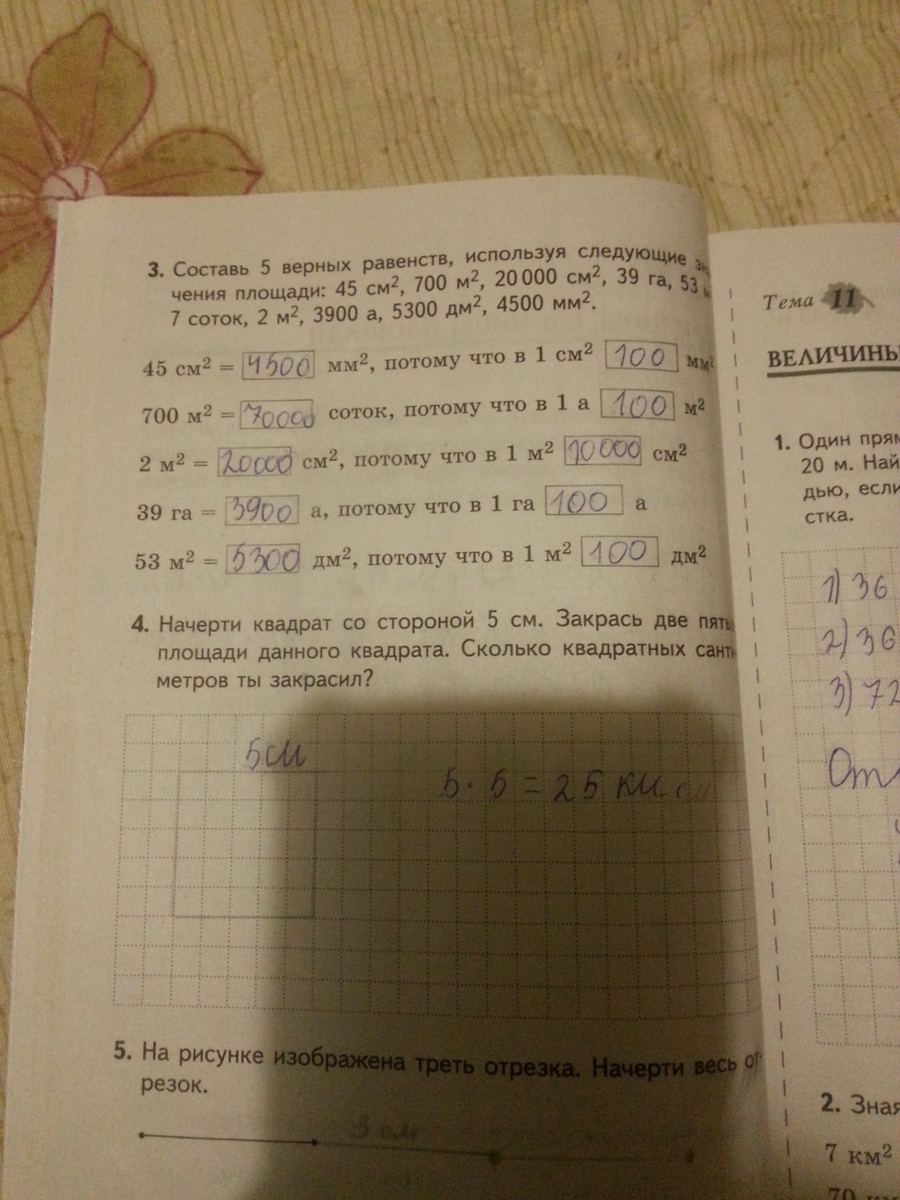 3. Составь 5 верных равенств, используя следующие зн
чения площади: 45 см², 700 м², 20 000 см², 39 га, 53
7 соток, 2 м², 3900 а, 5300 дм², 4500 мм².
45 см² = 4500 мм², потому что в 1 см² 100 мм²
700 м² = 70000 соток, потому что в 1 а 100 м²
2 м² = 20000 см², потому что в 1 м² 10000 см²
39 га = 3900 а, потому что в 1 га 100 а
53 м² = 5300 дм², потому что в 1 м² 100 дм²
4. Начерти квадрат со стороной 5 см. Закрась две пять
площади данного квадрата. Сколько квадратных сант
метров ты закрасил?
5см
5 · 5 = 25
5. На рисунке изображена треть отрезка. Начерти весь от
резок.
Тема 11
ВЕЛИЧИНЫ
1. Один прям
20 м. Най
дью, если
стка.
1) 36
2) 36
3) 72
От
2. Зная
7 км²
70 км